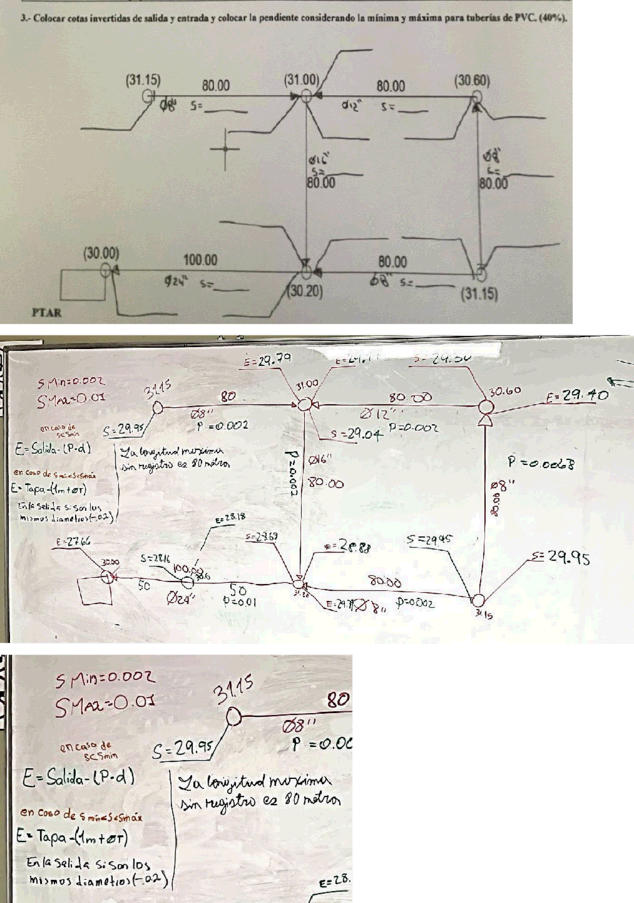 3.- Colocar cotas invertidas de salida y entrada y colocar la pendiente considerando la mínima y máxima para tuberías de PVC. (40%).
(31.15) 80.00 (31.00) 80.00 (30.60)
Ø8" S=____ Ø12" S=____
Ø16" Ø8"
S=____ S=____
80.00 80.00
(30.00) 100.00 (30.20) 80.00 (31.15)
Ø24" S=____ Ø8" S=____
PTAR
S Min=0.002
SMAX=0.01
en caso de
S<Smin
E=Salida-(P·d)
en caso de Smin≤S≤Smáx
E=Tapa-(1m+ØT)
En la salida si son los
mismos diametros (-.02)
La longitud maxima
sin registro es 80 metros
31.15 80 31.00 80.00 30.60
S=29.95 Ø8" P=0.002
E=29.79
Ø12" P=0.002
E=29.40
S=29.04
P=0.002 Ø16"
80.00
P=0.0068
Ø8"
E=28.18
S=28.69
S=29.95
S=29.95
E=27.66
30.00
S=28.16
50 50
Ø24" P=0.01
80.00
Ø8" P=0.002
31.15
S Min=0.002
SMAX=0.01
31.15 80
Ø8"
P=0.00
en caso de
S<Smin
S=29.95
E=Salida-(P·d)
en caso de Smin≤S≤Smáx
E=Tapa-(1m+ØT)
En la salida si son los
mismos diametros (-.02)
La longitud maxima
sin registro es 80 metros
E=28.